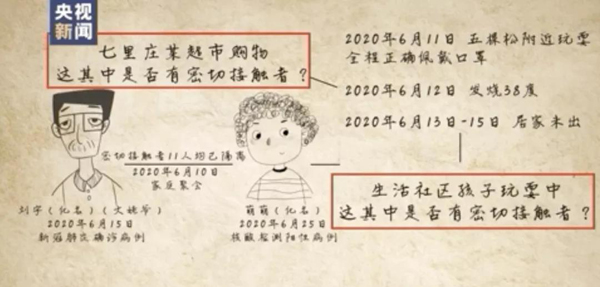 央视
新闻
七里庄某超市购物
这其中是否有密切接触者？
2020年6月11日 五棵松附近玩耍
全程正确佩戴口罩
2020年6月12日 发烧38度
2020年6月13日-15日 居家未出
密切接触者11人均已隔离
2020年6月10日
家庭聚会
生活社区孩子玩耍中
这其中是否有密切接触者？
刘宇（化名）（大姥爷）
2020年6月15日
新冠肺炎确诊病例
萌萌（化名）
2020年6月25日
核酸检测阳性病例